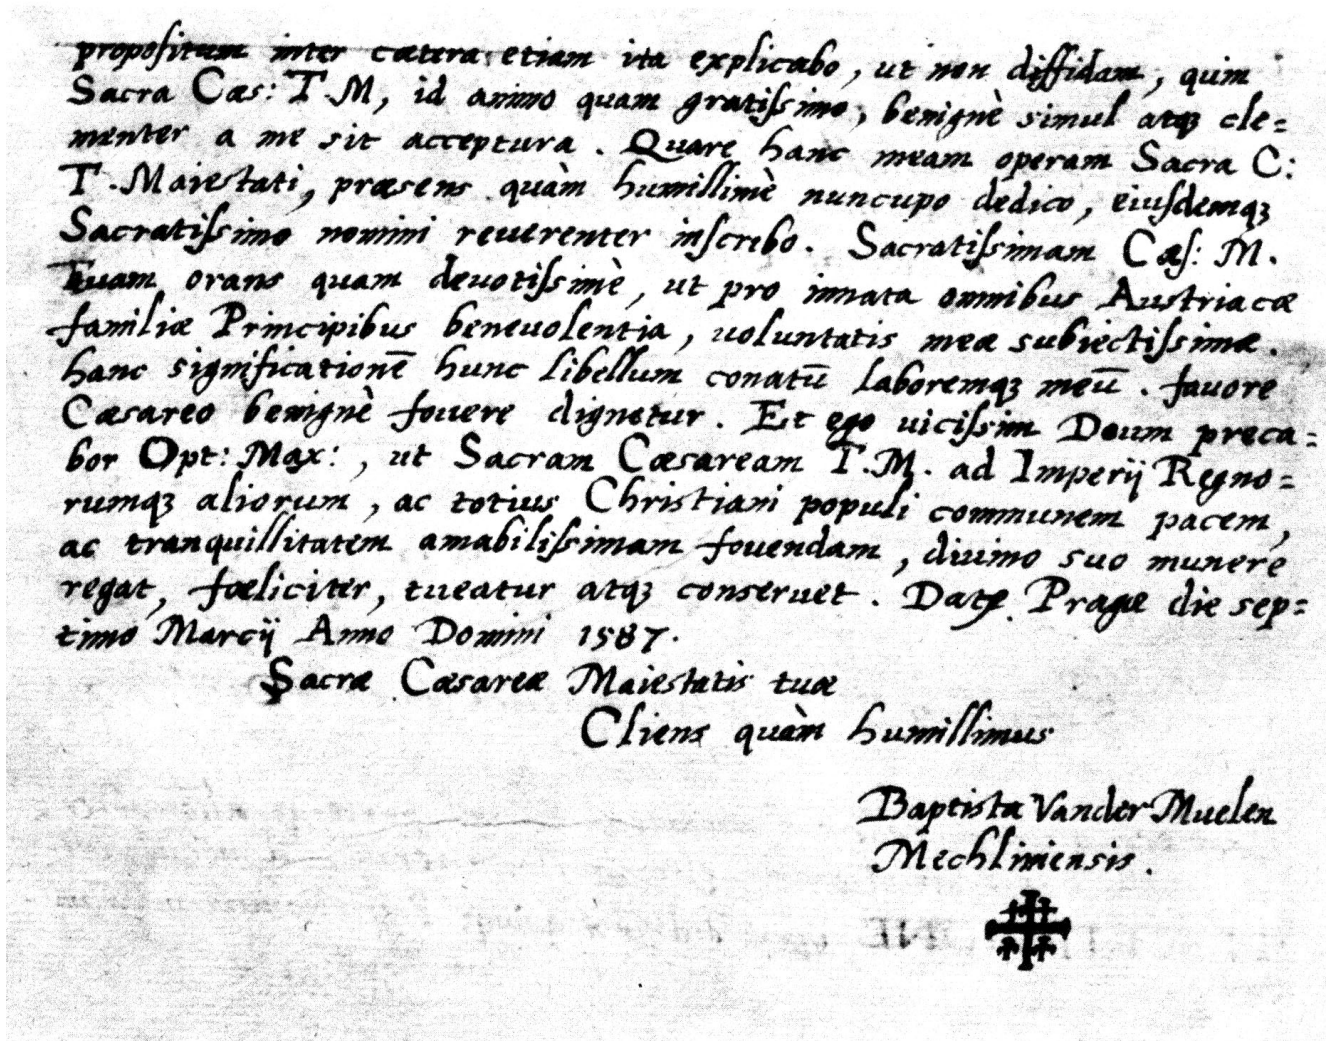 propositum inter cætera etiam ita explicabo, ut non diffidam, quin
Sacra Cæs: T.M, id animo quam gratissimo, benignè simul atqꝫ cle=
menter a me sit acceptura. Quare hanc meam operam Sacra C:
T. Maiestati, præsens quàm humillimè nuncupo dedico, eiusdemqꝫ
Sacratissimo nomini reuerenter inscribo. Sacratissimam Cæs: M.
Tuam orans quam deuotissimè, ut pro innata omnibus Austriacæ
familiæ Principibus beneuolentia, uoluntatis meæ subiectissimæ.
hanc significationē hunc libellum conatū laboremqꝫ meū. fauore
Cæsareo benignè fouere dignetur. Et ego uicissim Deum preca=
bor Opt: Max:, ut Sacram Cæsaream T.M. ad Imperij Regno=
rumqꝫ aliorum, ac totius Christiani populi communem pacem,
ac tranquillitatem amabilissimam fouendam, diuino suo munere
regat, fœliciter, tueatur atqꝫ conseruet. Datꝭ. Pragæ die sep=
timo Marcij Anno Domini 1587.
Sacræ Cæsareæ Maiestatis tuæ
Cliens quàm humillimus
Baptista Vander Muelen
Mechliniensis.